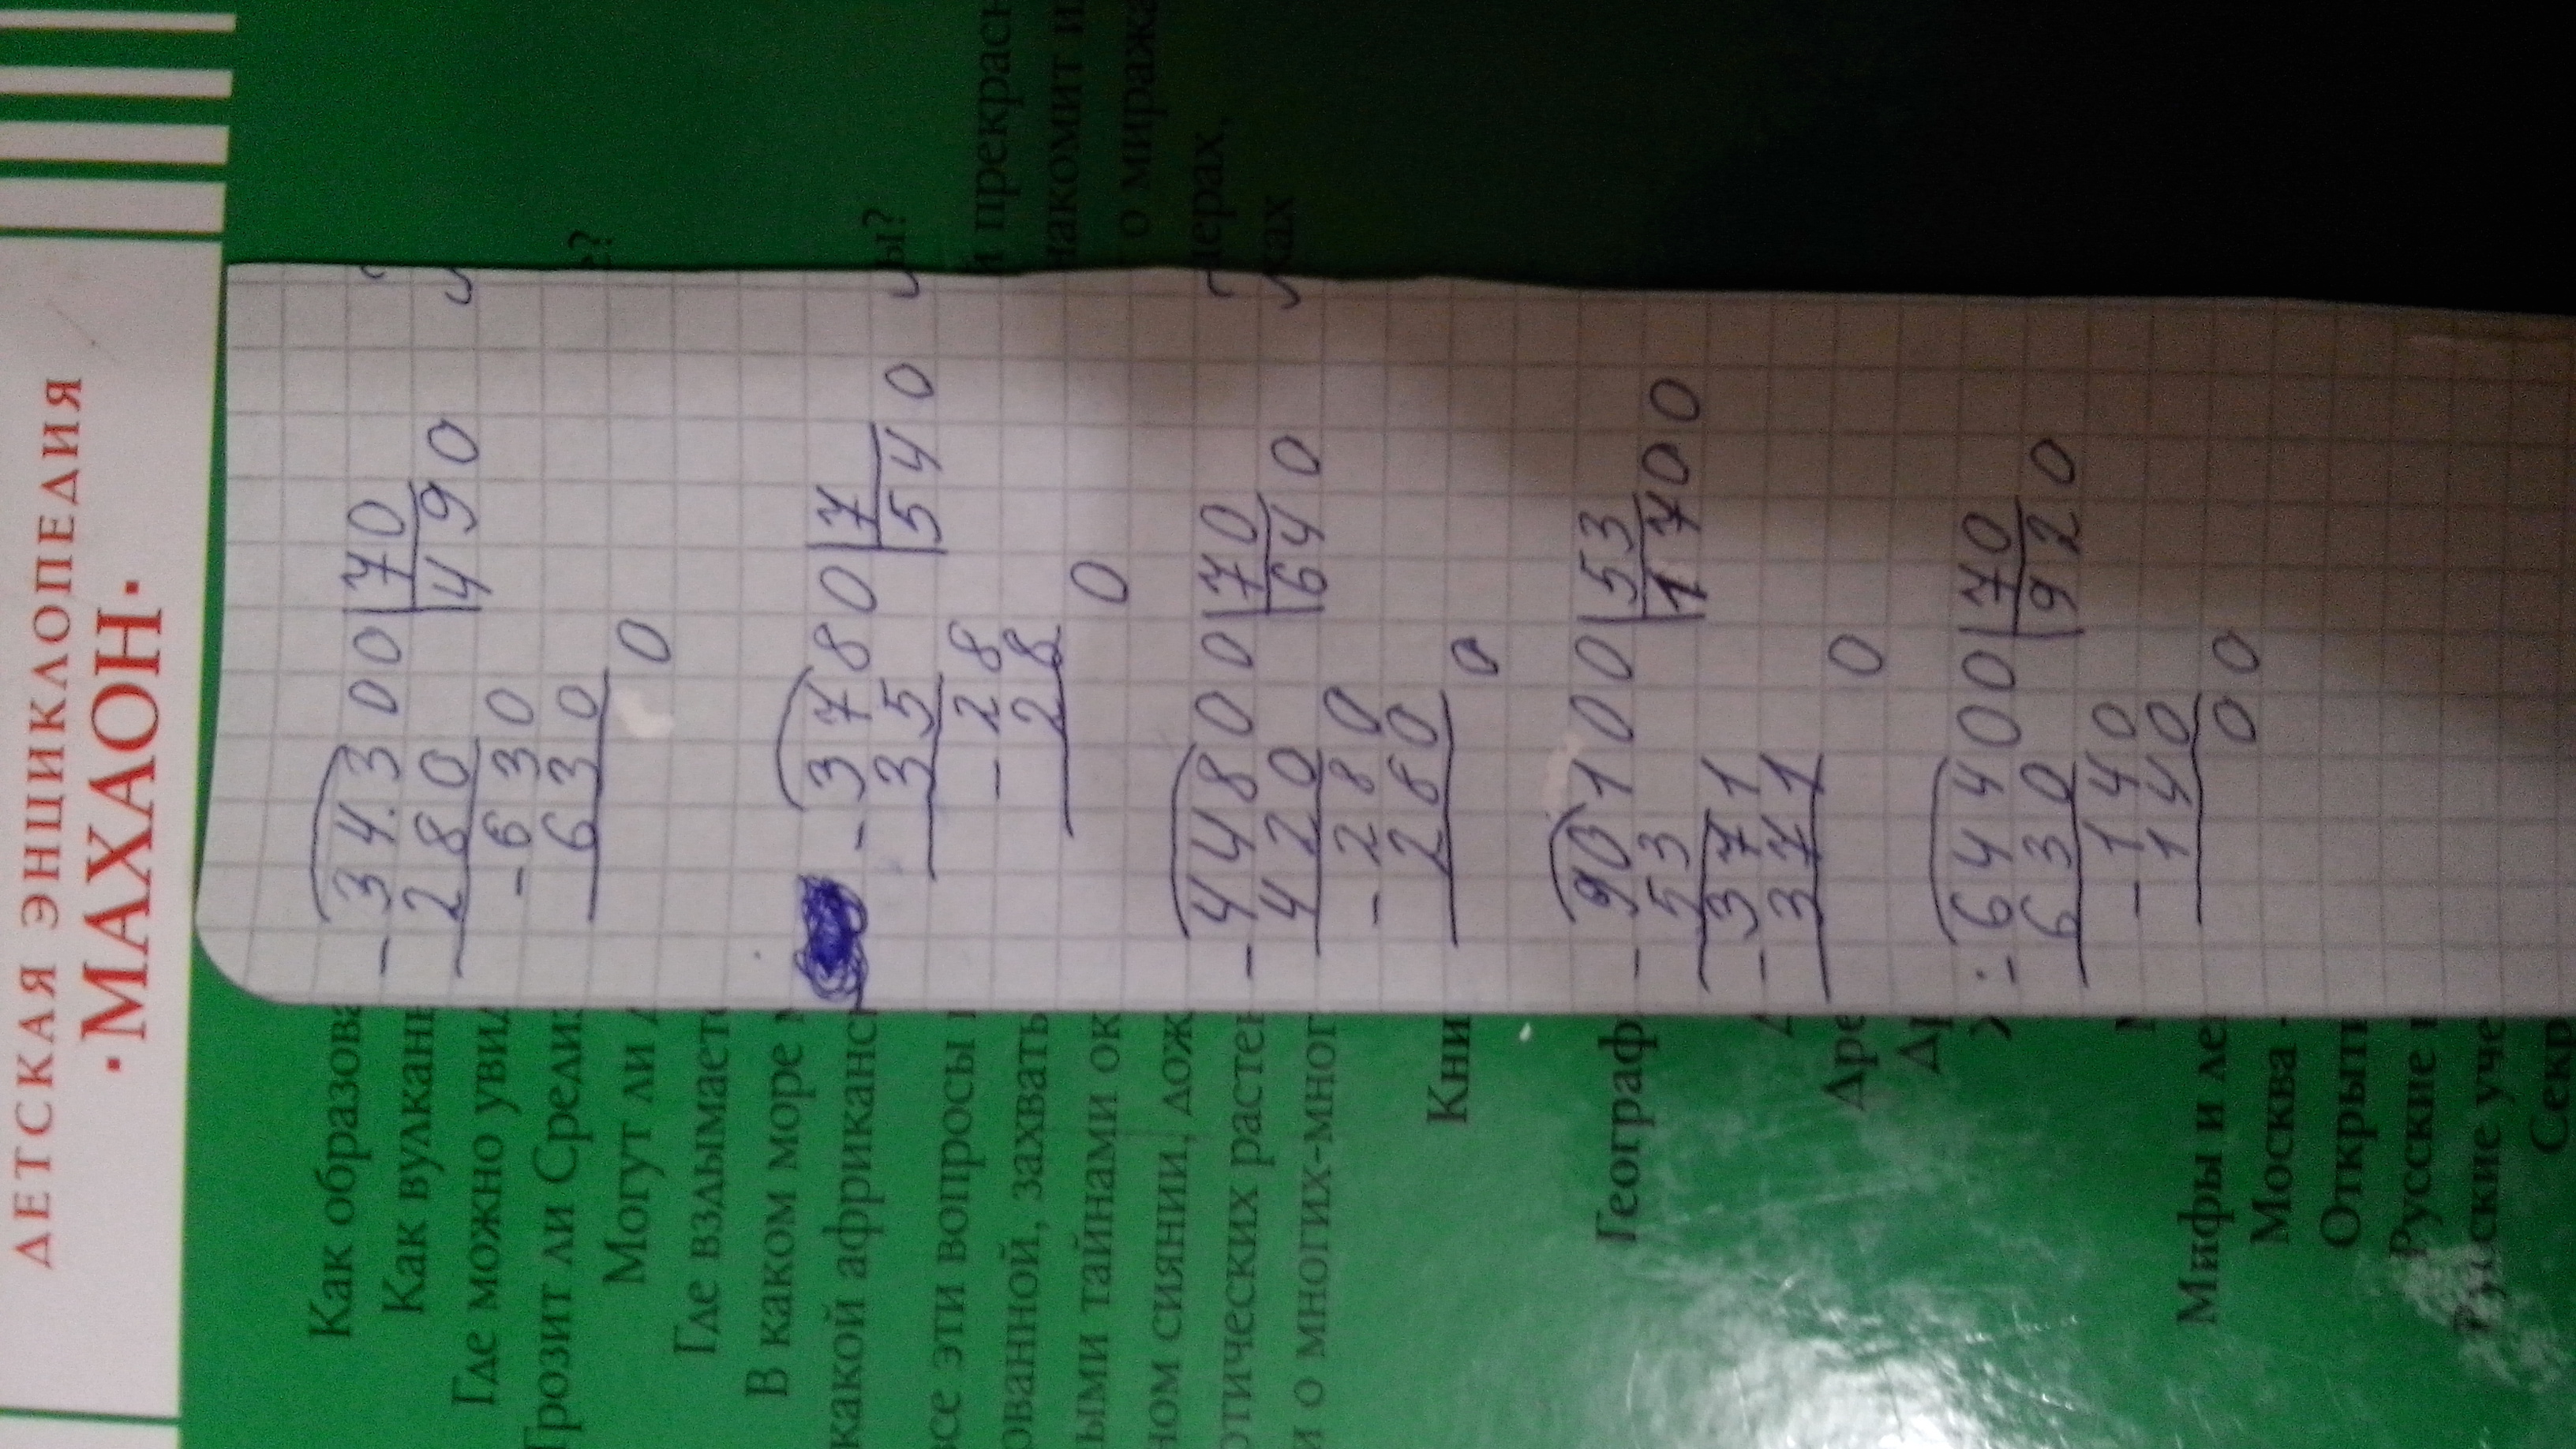 ДЕТСКАЯ ЭНЦИКЛОПЕДИЯ
·МАХАОН·
- 34300 | 70
280 | 490
- 630
630
0
- 3780 | 7
35 | 540
- 28
28
0
- 44800 | 70
420 | 640
- 280
280
0
- 90100 | 53
53 | 1700
- 371
371
0
- 64400 | 70
630 | 920
- 140
140
00
Как образова
Как вулкан
Где можно увид
Грозит ли Среди
е?
Могут ли
Где вздымаетс
В каком море
какой африканс
ы?
все эти вопросы
и прекрасн
ованной, захват
накомит
ыми тайнами ок
о мираж
ном сиянии, дож
черах,
отических расте
ках
и о многих-мног
Кни
Географ
Дре
Мифы и ле
Москва
Открыт
Русские
Русские уче
Секр